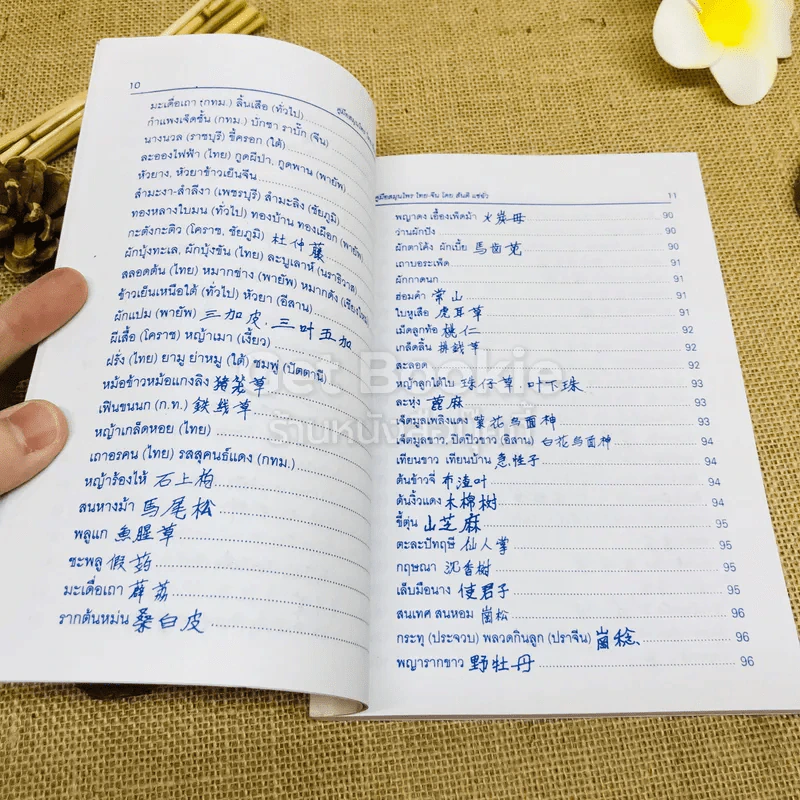 10
มะเดื่อเถา (กทม.) ลิ้นเสือ (ทั่วไป)
กำแพงเจ็ดชั้น (กทม.) บักซา ราบั๊ก (จีน)
นางนวล (ราชบุรี) ขี้ครอก (ใต้)
ละอองไฟฟ้า (ไทย) กูดผีป่า, กูดพาน (พายัพ)
หัวยาง, หัวยาข้าวเย็นจีน
สำมะงา-สำลีงา (เพชรบุรี) สำมะลิง (ชัยภูมิ)
ทองหลางใบมน (ทั่วไป) ทองบ้าน ทองเผือก (พายัพ)
กะตังกะติ้ว (โคราช, ชัยภูมิ) 杜仲藤
ผักบุ้งทะเล, ผักบุ้งขัน (ไทย) ละบูเลาห์ (นราธิวาส)
สลอดต้น (ไทย) หมากช่าง (พายัพ) หมากดัง (เชียงใหม่)
ข้าวเย็นเหนือใต้ (ทั่วไป) หัวยา (อีสาน)
ผักแปม (พายัพ) 三加皮, 三叶五加
ผีเสื้อ (โคราช) หญ้าเมา (เงี้ยว)
ฝรั่ง (ไทย) ยามู ย่าหมู (ใต้) ชมพู่ (ปัตตานี)
หม้อข้าวหม้อแกงลิง 猪笼草
เฟินขนนก (ก.ท.) 鉄线草
หญ้าเกล็ดหอย (ไทย)
เถาอรคน (ไทย) รสสุคนธ์แดง (กทม.)
หญ้าร้องไห้ 石上柏
สนหางม้า 馬尾松
พลูแก 魚腥草
ชะพลู 假药
มะเดื่อเถา 薜荔
รากต้นหม่น 桑白皮
คู่มือสมุนไพร ไทย-จีน โดย สันติ แซ่ชั่ว 11
พญาดง เอื้องเพ็ดม้า 火炭母 90
ว่านผักปัง 90
ผักตาโค้ง ผักเบี้ย 馬齒苋 90
เถาบอระเพ็ด 91
ผักกาดนก 91
ฮ่อมคำ 常山 91
ใบหูเสือ 虎耳草 91
เม็ดลูกท้อ 桃仁 92
เกล็ดลิ้น 排銭草 92
สะลอด 92
หญ้าลูกใต้ใบ 珠仔草, 叶下珠 93
ละหุ่ง 蓖麻 93
เจ็ดมูลเพลิงแดง 紫花乌面神 93
เจ็ดมูลขาว, ปิดปิวขาว (อิสาน) 白花乌面神 94
เทียนขาว เทียนบ้าน 急性子 94
ต้นข้าวจี่ 布渣叶 94
ต้นงิ้วแดง 木棉树 94
ขี้ตุ่น 山芝麻 95
ตะละปัทฤษี 仙人掌 95
กฤษณา 沉香樹 95
เล็บมือนาง 使君子 95
สนเทศ สนหอม 崗松 96
กระทุ (ประจวบ) พลวดกินลูก (ปราจีน) 崗稔 96
พญารากขาว 野牡丹 96
Get Bookie